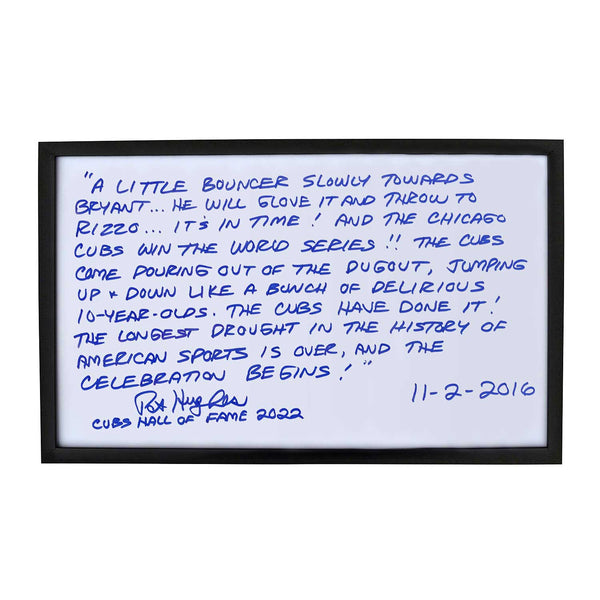 "A LITTLE BOUNCER SLOWLY TOWARDS
BRYANT... HE WILL GLOVE IT AND THROW TO
RIZZO... IT'S IN TIME! AND THE CHICAGO
CUBS WIN THE WORLD SERIES!! THE CUBS
COME POURING OUT OF THE DUGOUT, JUMPING
UP + DOWN LIKE A BUNCH OF DELIRIOUS
10-YEAR-OLDS. THE CUBS HAVE DONE IT!
THE LONGEST DROUGHT IN THE HISTORY OF
AMERICAN SPORTS IS OVER, AND THE
CELEBRATION BEGINS!"
Pat Hughes
11-2-2016
CUBS HALL OF FAME 2022